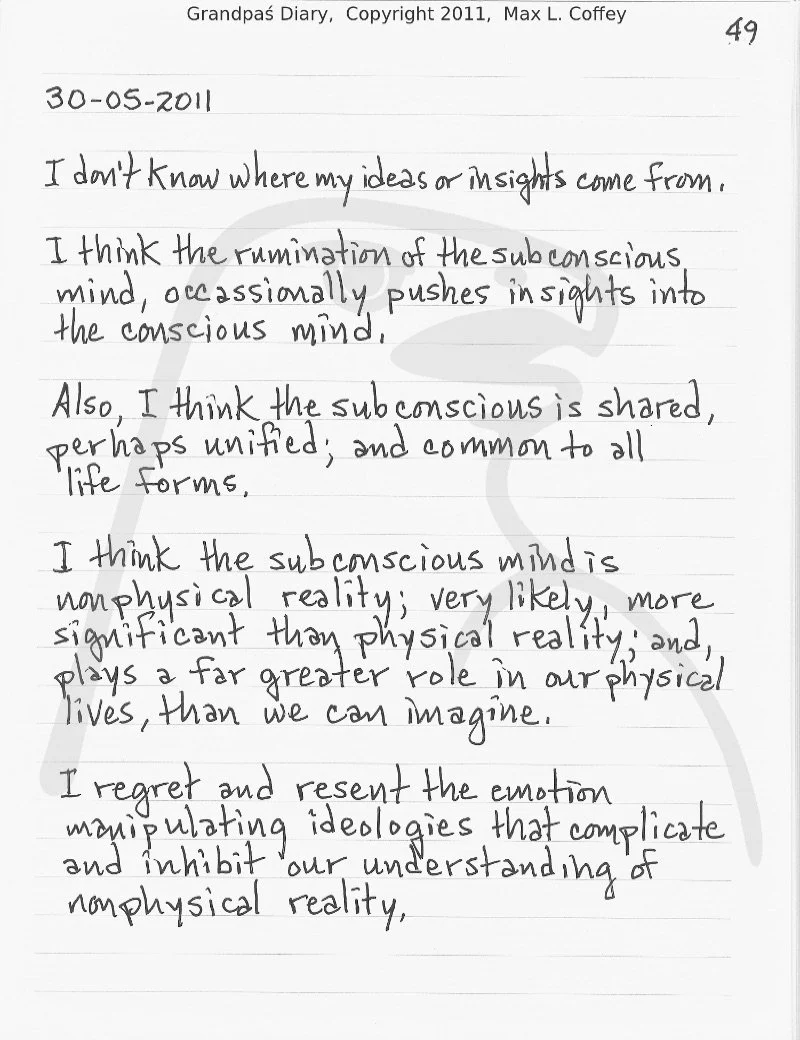 Grandpaś Diary, Copyright 2011, Max L. Coffey
49
30-05-2011
I don't know where my ideas or insights come from.
I think the rumination of the subconscious
mind, occassionally pushes insights into
the conscious mind.
Also, I think the subconscious is shared,
perhaps unified; and common to all
life forms.
I think the subconscious mind is
nonphysical reality; very likely, more
significant than physical reality; and,
plays a far greater role in our physical
lives, than we can imagine.
I regret and resent the emotion
manipulating ideologies that complicate
and inhibit our understanding of
nonphysical reality,